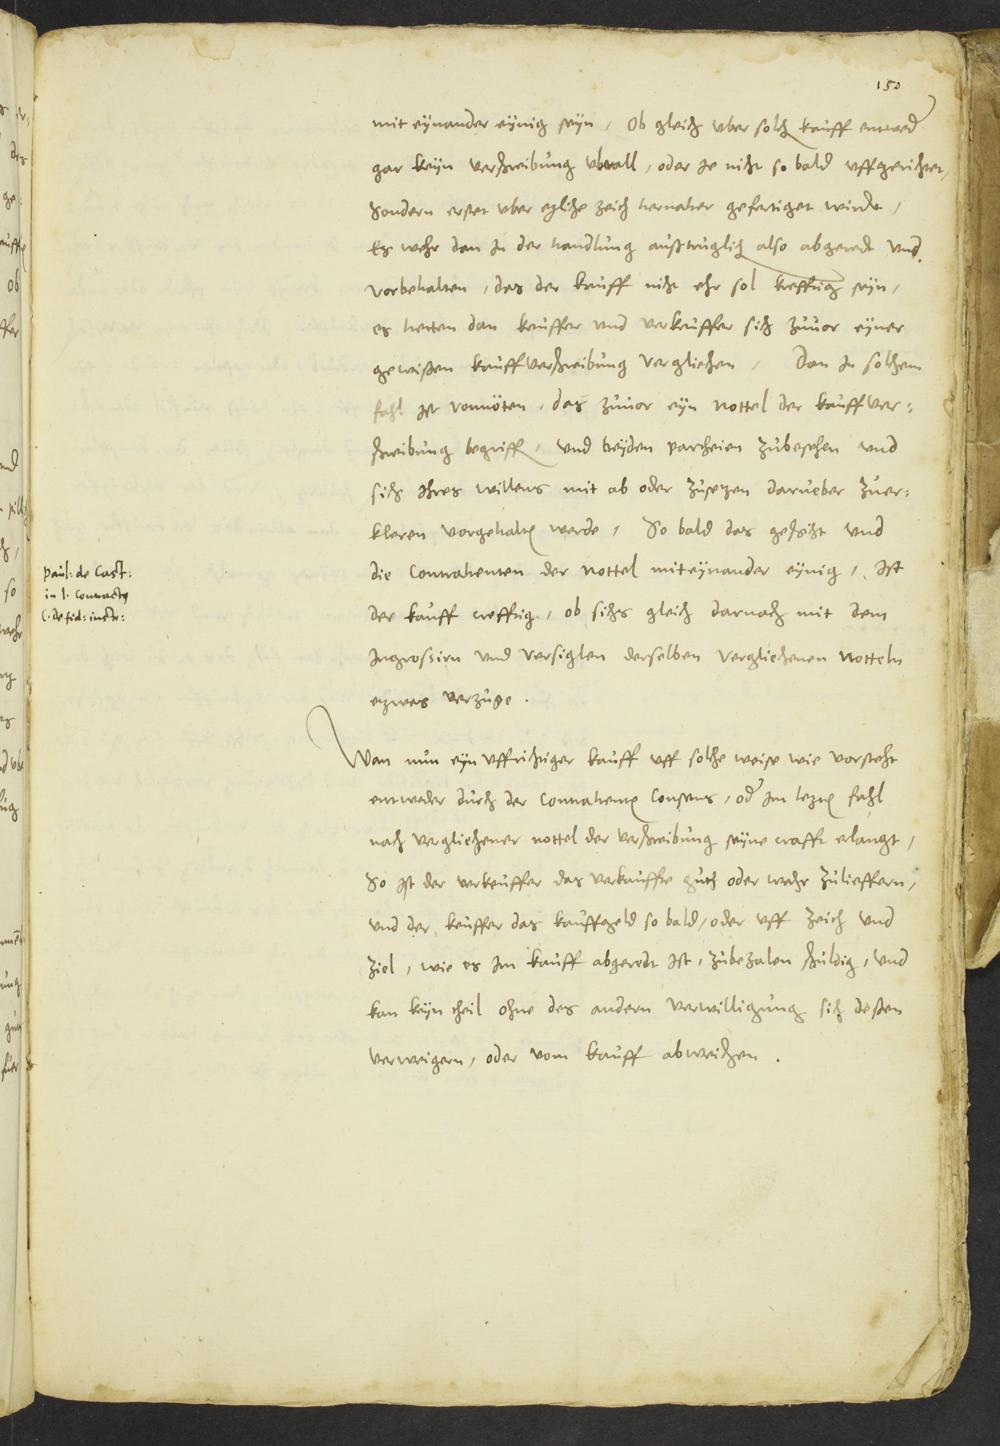 150
mit eynander eynig seyn, Ob gleich vber solch kauff entwed
gar keyn verschreibung vberall, oder Je nicht so bald vffgerichtet,
Sondern erstet vber etzliche Zeith hernaher gefertiget wirdt,
Es wehr dan in der handlung austruglich also abgeredt vnd
vorbehalten, das der kauff nicht ehr sol kreffttig seyn,
es hetten dan keuffer vnd verkeuffer sich zuuor eyner
gewissen kauffverschreibung verglichen, Dan in solchem
fahl ist vonnöten, das zuuor eyn nottel der kauffver:
schreibung begriff, vnd beyden partheien zubesehen vnd
sich Ihres willens mit ab oder zusetzen darueber zuer:
kleren vorgehalten werde, So bald das geschicht vnd
die Contrahenten der nottel miteynander eynig, Ist
der kauff creffttig, ob sichs gleich darnach mit dem
Ingrossirn vnd versiglen derselben vergliechenen Notteln
etzwas verzüge.
Paul: de Cast:
in l. contractus
C. de fid: instr:
Wan nun eyn vffrichtiger kauff vff solche weise wie vorsteht
entweder durch der Contrahenten Consens, od Im letzten fahl
nach vergliechener nottel der verschreibung seyne crafft erlangt,
So Ist der verkeuffer das verkauffte guth oder wahr zulieffern,
vnd der keuffer das kauffgeld so bald, oder vff Zeith vnd
Ziel, wie es Im kauff abgeredt Ist, zubezalen schuldig, vnd
kan keyn theil ohne des andern verwilligung sich dessen
verweigern, oder vom kauff abweichen.